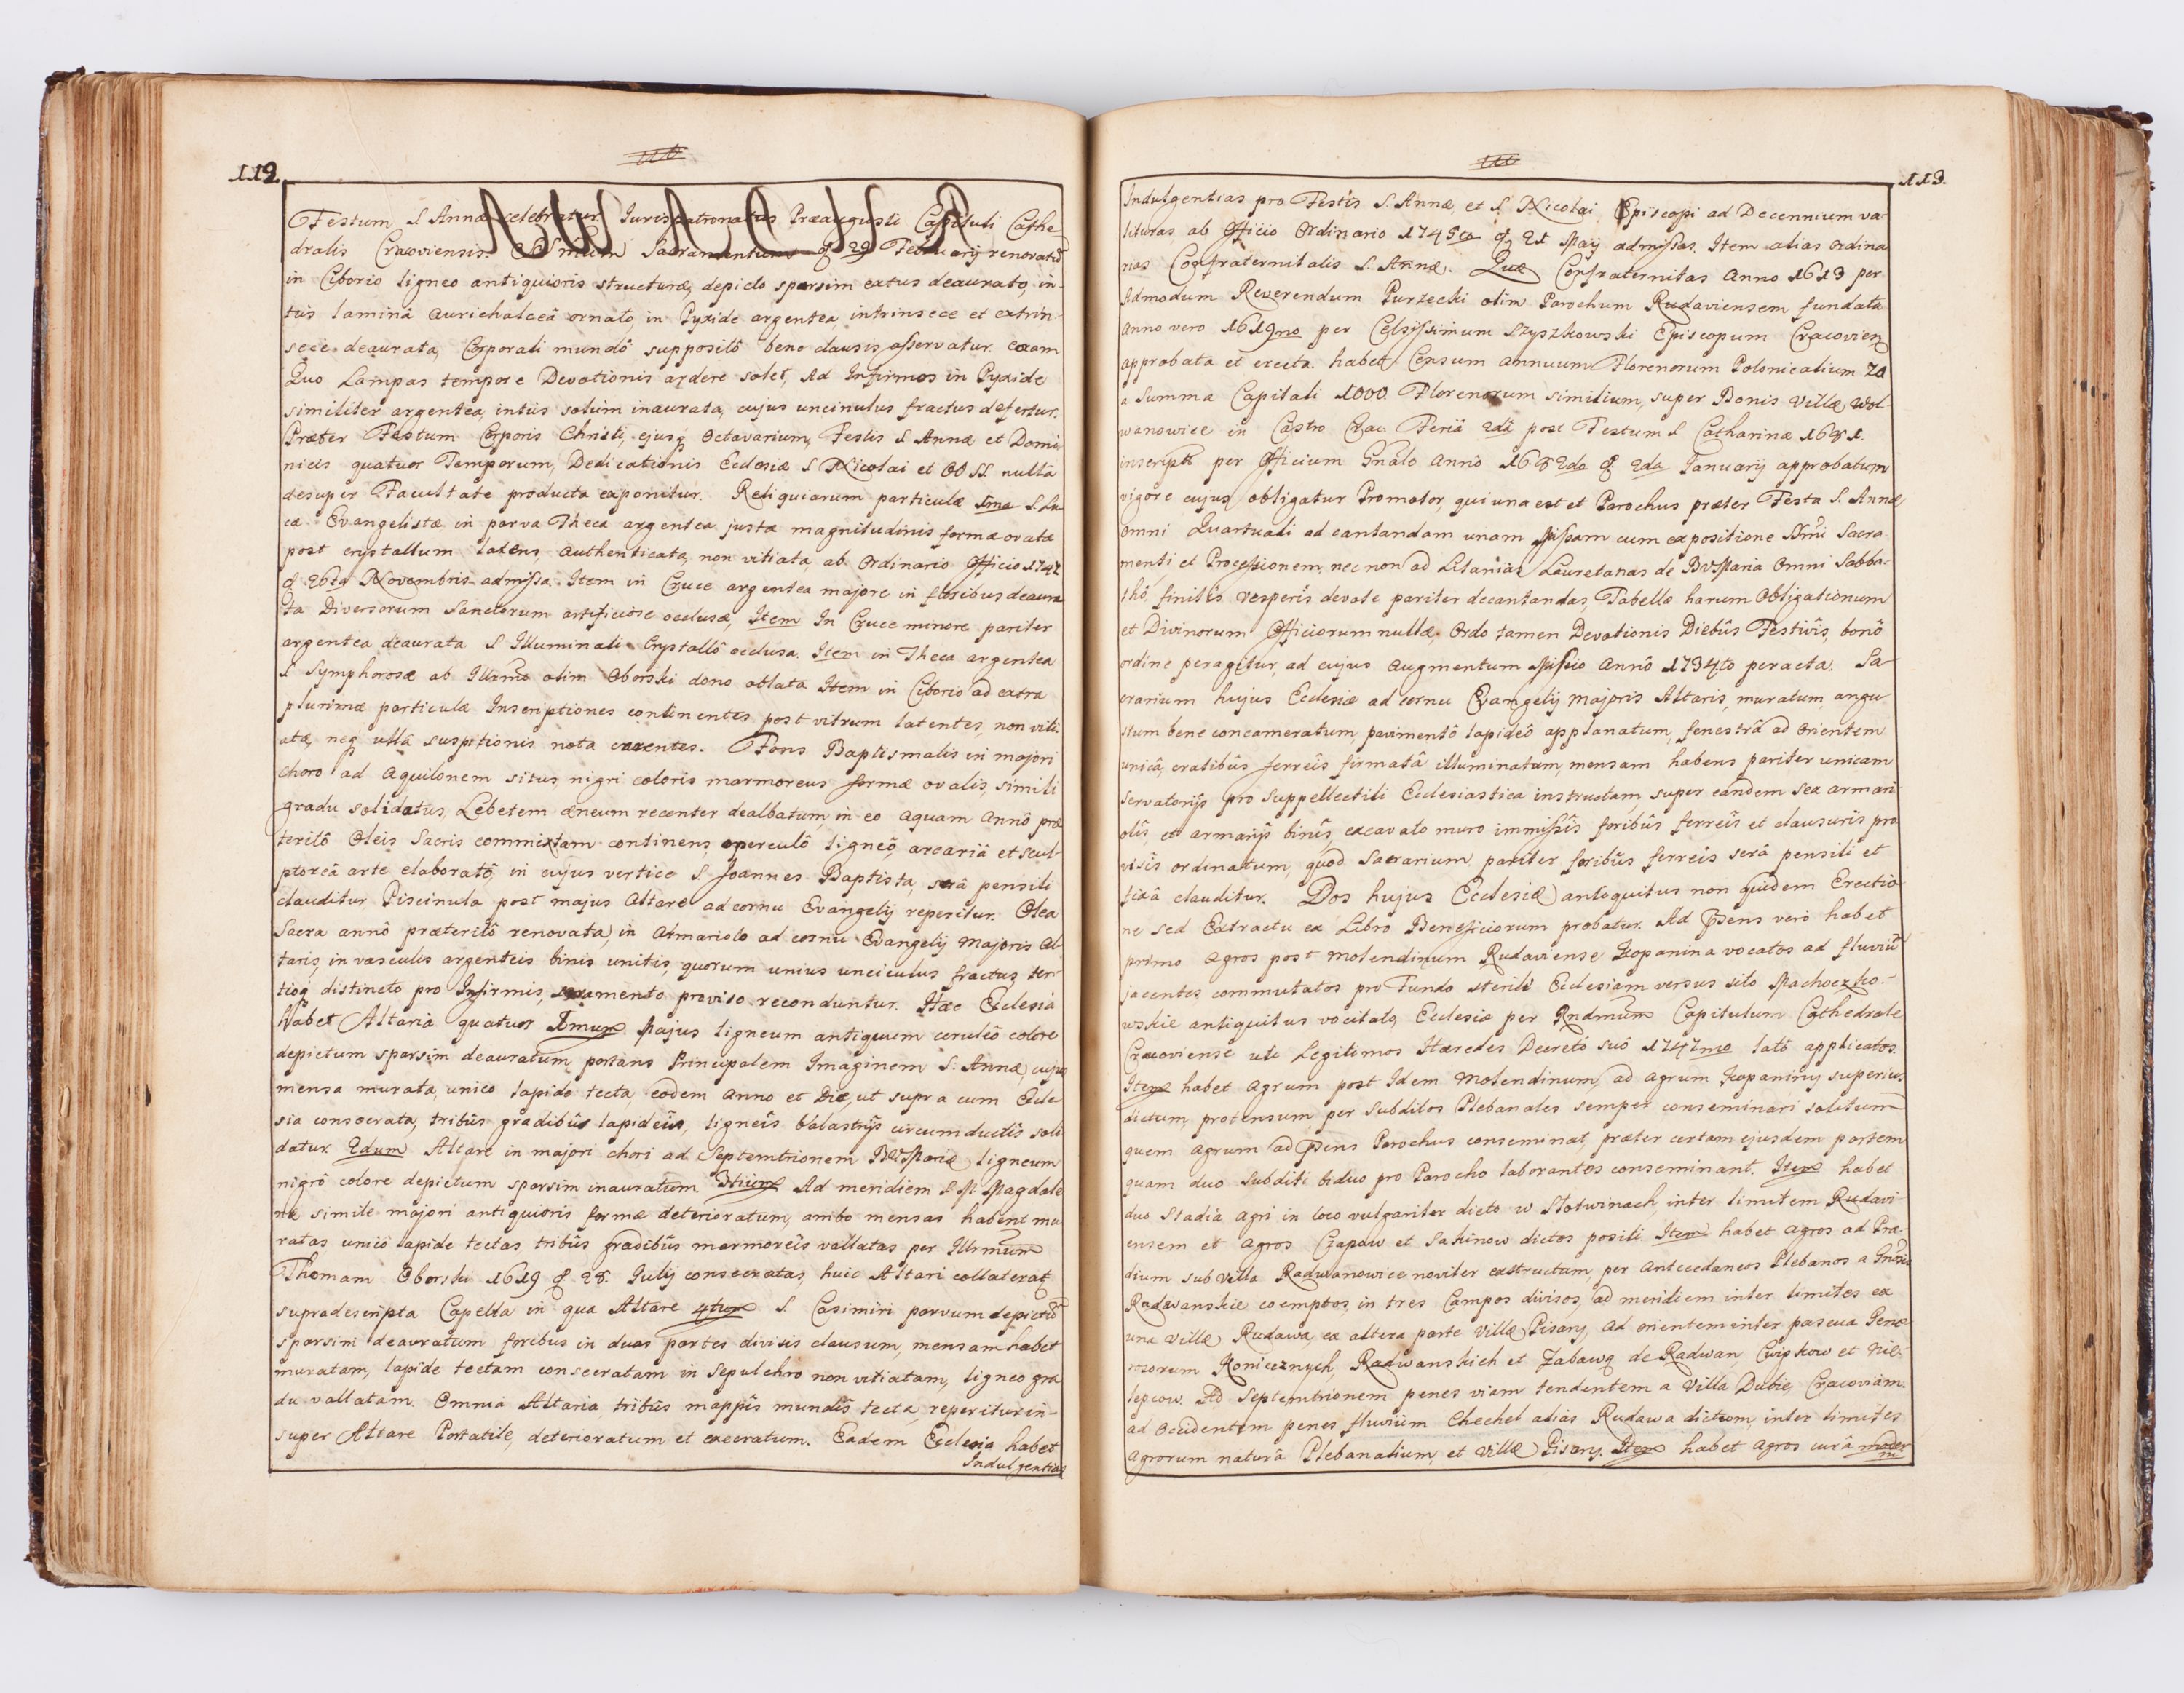 112.
Festum S. Annæ celebratur. Jurispatronatus Præaugusti Capituli Cathe-
dralis Cracoviensis. SSmum Sacramentum d. 29 Februarij renovatū
in Ciborio ligneo antiquioris structuræ, depicto sparsim extus deaurato, in-
tus laminâ aurichalceâ ornato, in Pyxide argentea, intrinsece et extrin-
sece deaurata, Corporali mundô suppositô bene clausis asservatur. Coram
Quo Lampas tempore Devotionis ardere solet, Ad Infirmos in Pyxide
similiter argentea, intùs solùm inaurata, cujus uncinulus fractus defertur.
Præter Festum Corporis Christi, ejusq Octavarium, Festis S. Annæ et Domi-
nicis quatuor Temporum, Dedicationis Ecclesiæ S. Nicolai et OO SS. nullâ
desuper Facultate producta exponitur. Reliquiarum particulæ 1ma S. Lu-
cæ Evangelistæ in parva Theca argentea justæ magnitudinis formæ ovatæ
post crystallum latens, authenticata, non vitiata, ab Ordinario Officio 1747
d. 26ta Novembris admissa. Item in Cruce argentea majore in floribus deaura
ta Diversorum Sanctorum artificiose occlusæ, Item In Cruce minore pariter
argentea deaurata S. Illuminati Crystallô occlusa. Item in Theca argentea
S. Symphorosæ ab Illūmo olim Oborski dono oblata Item in Ciborio ad extra
plurimæ particulæ Inscriptiones continentes, post vitrum latentes, non viti-
atæ, neq ullâ suspitionis nota carentes. Fons Baptismalis in majori
choro ad Aquilonem situs, nigri coloris marmoreus formæ ovalis, simili
gradu solidatus, Lebetem æneum recenter dealbatum, in eo aquam Annô præ
teritô Oleis Sacris commixtam continens, operculô ligneô, arcariâ et scul-
ptoreâ arte elaboratô, in cujus vertice S. Joannes Baptista, serâ pensili
clauditur Piscinula post majus Altare ad cornu Evangelij reperitur. Olea
Sacra annô præteritô renovata, in Armariolo ad cornu Evangelij Majoris Al-
taris, in vasculis argenteis binis unitis, quorum unius unciculus fractus, ter-
tioq distincto pro Infirmis, juramento proviso reconduntur. Hæc Ecclesia
Habet Altaria quatuor 1mum Majus ligneum antiquum ceruleô colore
depictum sparsim deauratum, portans Principalem Imaginem S. Annæ, cujus
mensa murata, unico lapide tecta, eodem Anno et Die, ut supra cum Eccle-
sia consecrata, tribûs gradibûs lapideis, ligneîs balastrijs circumductîs soli
datur. 2dum Altare in majori chori ad Septemtrionem BVMariæ ligneum
nigrô colore depictum sparsim inauratum. 3tium Ad meridiem S. M. Magdale
næ simile majori antiquioris formæ deterioratum, ambo mensas habent mu
ratas unicô lapide tectas tribûs gradibûs marmoreîs vallatas per Illrmum
Thomam Oborski 1619 d. 28. Julij consecratas, huic Altari collateral
supradescripta Capella in qua Altare 4tum S. Casimiri parvum depictū
sparsim deauratum foribus in duas partes divisis clausum, mensam habet
muratam, lapide tectam consecratam in sepulchro non vitiatam, ligneo gra
du vallatam. Omnia Altaria tribûs mappîs mundîs tecta, reperitur in-
super Altare Portatile, deterioratum et execratum. Eadem Ecclesia habet
Indulgentias
113.
Indulgentias pro Festis S. Annæ, et S. Nicolai, Episcopi ad Decennium va-
lituras, ab Officio Ordinario 1745to d. 21 Maij admissas. Item alias Ordina
rias Confraternitatis S. Annæ. Quæ Confraternitas Anno 1613 per
Admodum Reverendum Purzecki olim Parochum Rudaviensem fundata
Anno vero 1619no per Celsissimum Szyszkowski Episcopum Cracovien
approbata et erecta habet Censum annuum Florenorum Polonicalium 70
a Summa Capitali 1000 Florenorum similium, super Bonis Villæ Wol-
wanowice in Castro Crac. Feriâ 2dâ post Festum S. Catharinæ 1681.
inscripti per Officium Gnale Annô 1682do d. 2da January approbatum
vigore cujus obligatur Promotor, qui una est et Parochus præter Festa S. Annæ
omni Quartuali ad cantandam unam Missam cum expositione SSmi Sacra-
menti et Processionem, nec non ad Litanias Lauretanas de BVMaria omni Sabba-
thô, finitîs vesperîs devote pariter decantandas, Tabellæ harum Obligationum
et Divinorum Officiorum nullæ, Ordo tamen Devotionis Diebûs Festivîs, bonô
ordine peragitur, ad cujus augmentum Missio Annô 1734to peracta. Sa-
crarium hujus Ecclesiæ ad cornu Evangelij Majoris Altaris, muratum, angu-
stum bene concameratum, pavimentô lapideô applanatum, fenestrâ ad Orientem
unicâ, cratibûs ferreîs firmatâ illuminatum, mensam habens pariter unicam
servatorijs pro suppellectili Ecclesiastica instructam, super eandem sex armari
olîs, et armarijs binîs, excavato muro immissîs foribûs ferreîs et clausuris pro
visîs ordinatum, quod Sacrarium pariter foribûs ferreîs serâ pensili et
fixâ clauditur. Dos hujus Ecclesiæ antoquitus non quidem Erectio-
ne sed Extractu ex Libro Beneficiorum probatur. Ad Psens verò habet
primo Agros post molendinum Rudaviense Kopanina vocatos ad fluviū
jacentes, commutatos pro Fundo sterili Ecclesiam versus sito Machoczko-
wskie antiquitus vocitato, Ecclesiæ per Rndmum Capitulum Cathedrale
Cracoviense uti Legitimos Hæredes Decretô suô 1747mo latô applicatos.
Item habet agrum post Idem molendinum, ad agrum Kopaniny superius
dictum, protensum, per Subditos Plebanales semper conseminari solitum
quem agrum ad Psens Parochus conseminat, præter certam ejusdem partem
quam duo Subditi biduo pro Parocho laborantes conseminant. Item habet
duo Stadia agri in loco vulgariter dicto w Stotwinach inter limitem Rudavi-
ensem et Agros Czapow et Sakinow dictos positi. Item habet agros ad Præ-
dium sub Villa Radwanowice noviter exstructum, per Antecedaneos Plebanos a Gnosis
Radwanskie coemptos, in tres Campos divisos, ad meridiem inter limites ex
una Villæ Rudawa, ex altera parte Villæ Pisary, ad orientem inter pascua Gene
rosorum Koniecznych, Radwanskich et Zabawa de Radwan, Cwipkow et Nie-
lepcow. Ad Septemtrionem penes viam tendentem a Villa Dubie, Cracoviam.
ad Occidentem penes fluvium Chechel alias Rudawa dictum, inter limites
Agrorum naturâ Plebanalium, et Villæ Pisary. Item habet agros curâ moder
ni